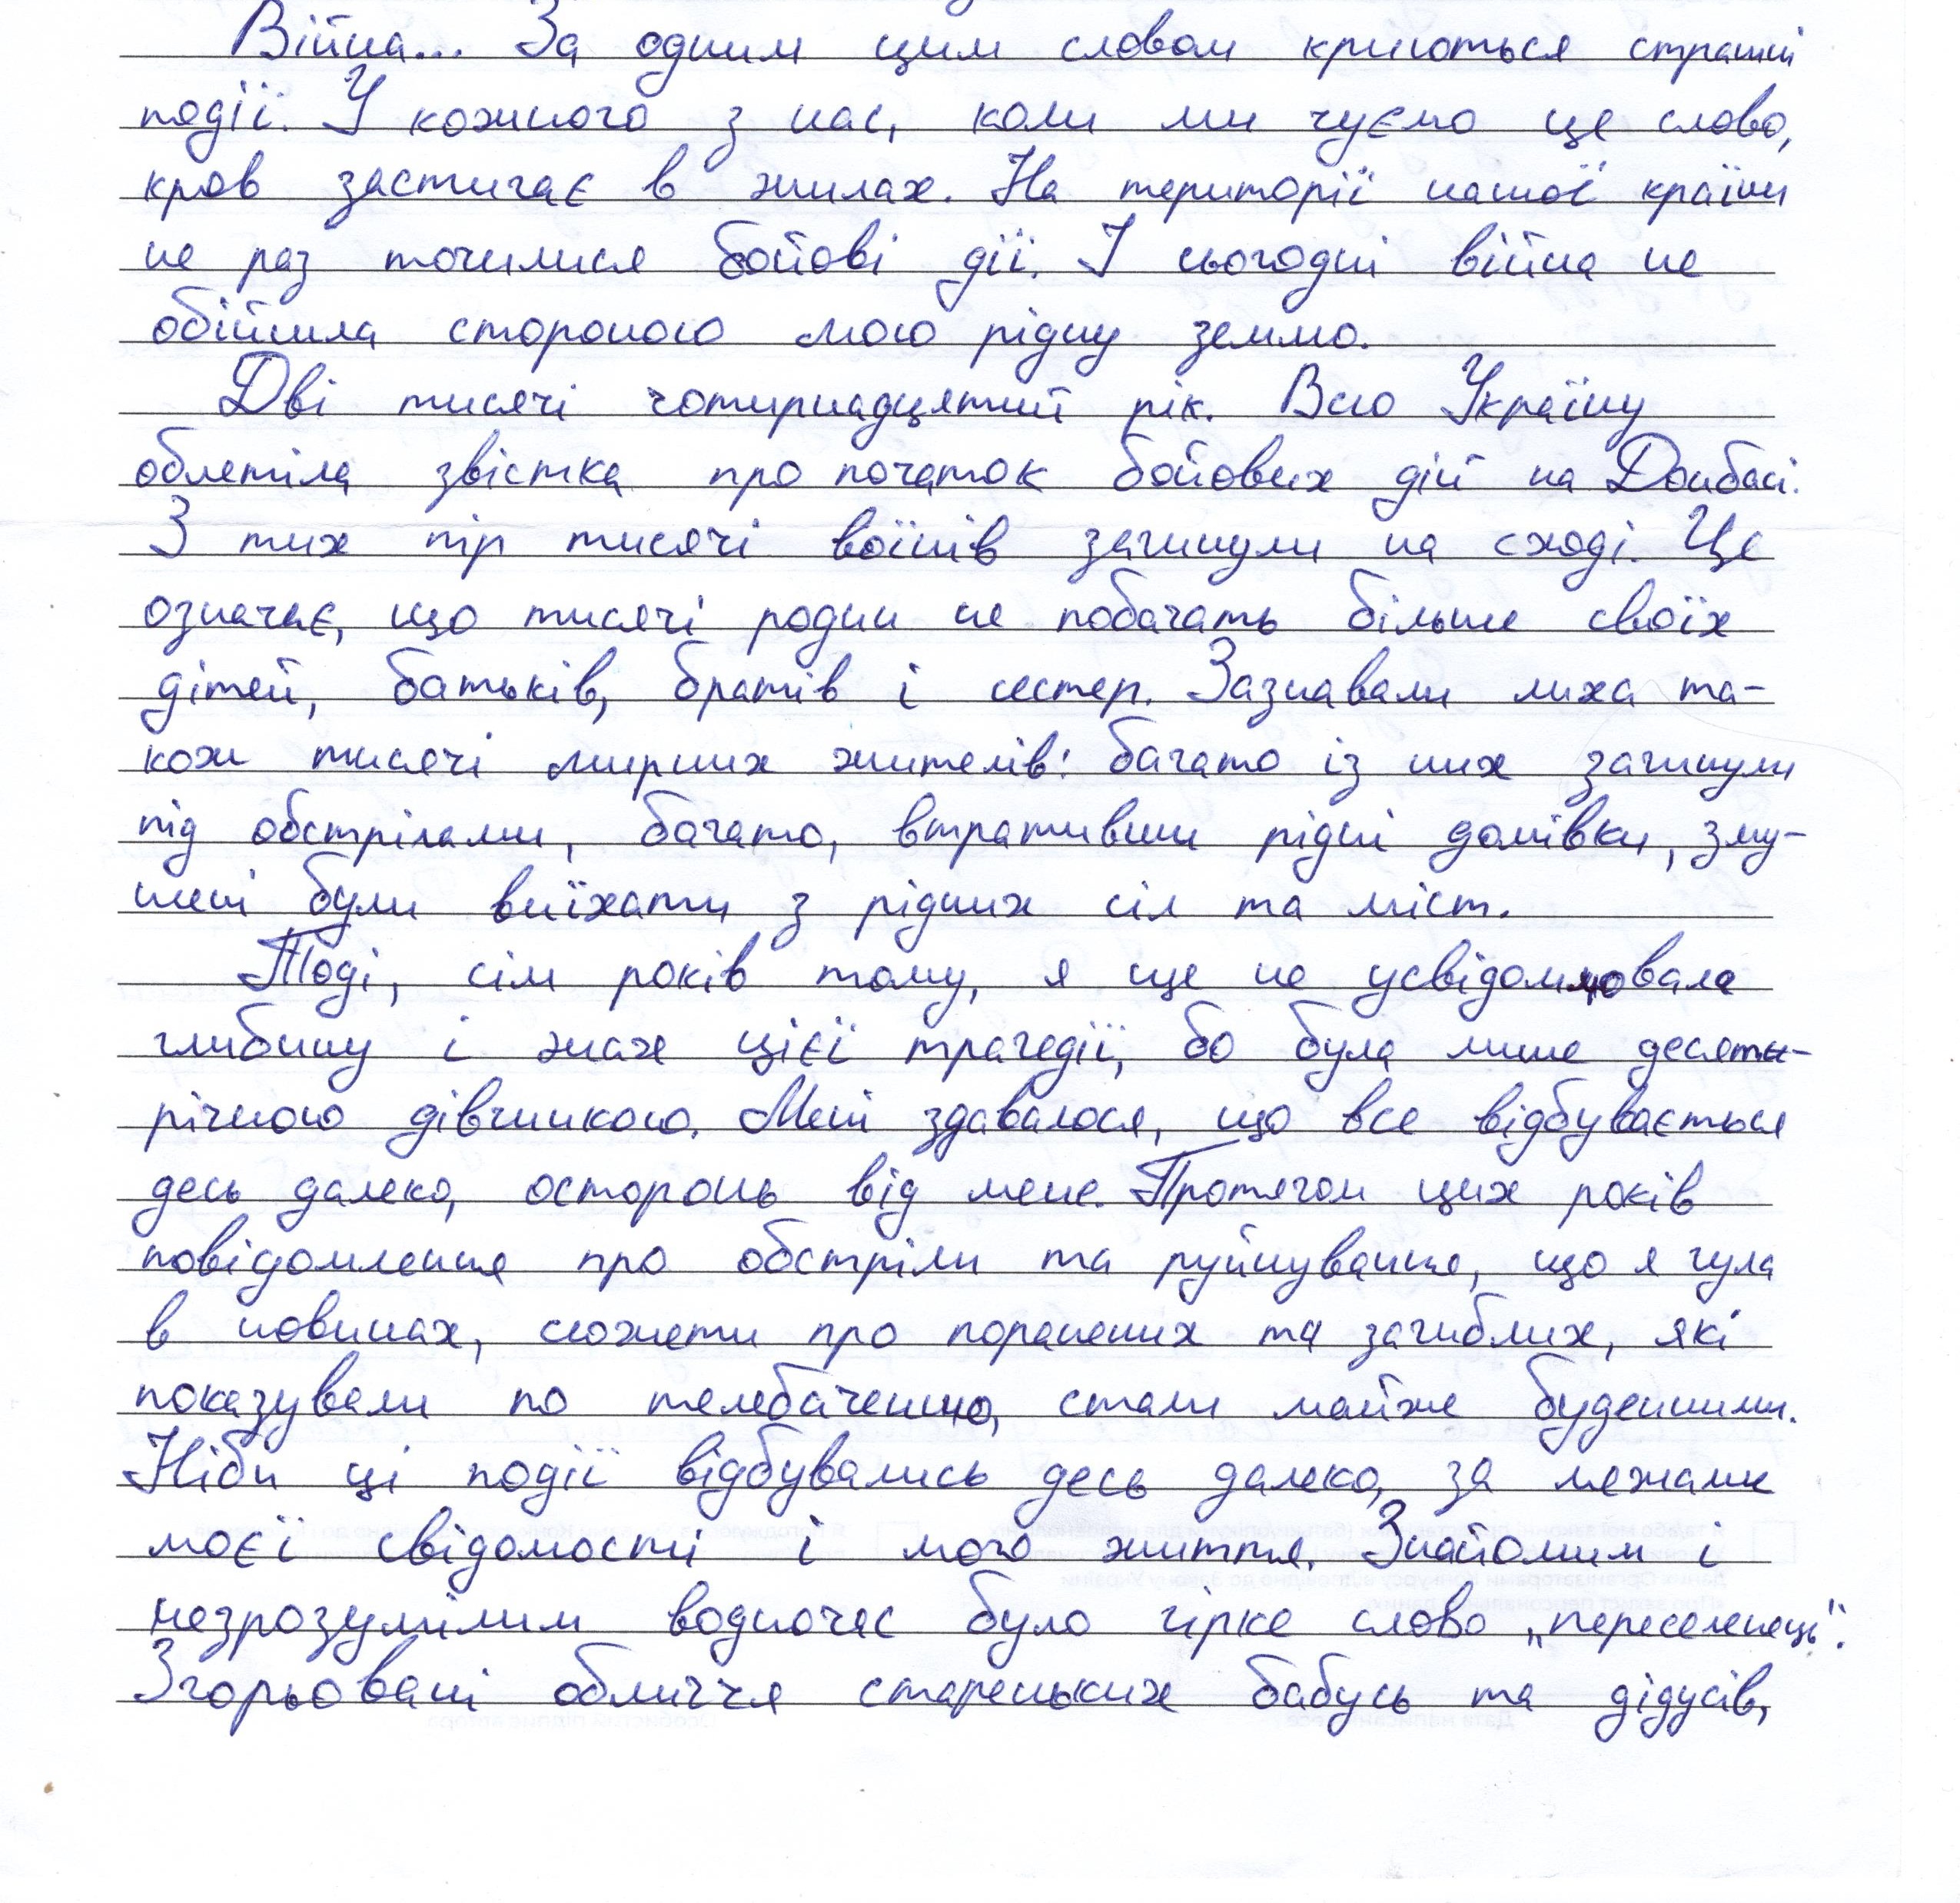 Війна... За одним цим словом криються страшні
події. У кожного з нас, коли ми чуємо це слово,
кров застигає в жилах. На території нашої країни
не раз точилися бойові дії. І сьогодні війна не
обійшла стороною мою рідну землю.
Дві тисячі чотирнадцятий рік. Всю Україну
облетіла звістка про початок бойових дій на Донбасі.
З тих пір тисячі воїнів загинули на сході. Це
означає, що тисячі родин не побачать більше своїх
дітей, батьків, братів і сестер. Зазнавали лиха та-
кож тисячі мирних жителів: багато із них загинули
під обстрілами, багато, втративши рідні домівки, зму-
шені були виїхати з рідних сіл та міст.
Тоді, сім років тому, я ще не усвідомлювала
глибину і жах цієї трагедії, бо була лише десяти-
річною дівчинкою. Мені здавалося, що все відбувається
десь далеко, осторонь від мене. Протягом цих років
повідомлення про обстріли та руйнування, що я чула
в новинах, сюжети про поранених та загиблих, які
показували по телебаченню, стали майже буденними.
Ніби ці події відбувались десь далеко, за межами
моєї свідомості і мого життя. Знайомим і
незрозумілим водночас було гірке слово „переселенець".
Згорьовані обличчя стареньких бабусь та дідусів,